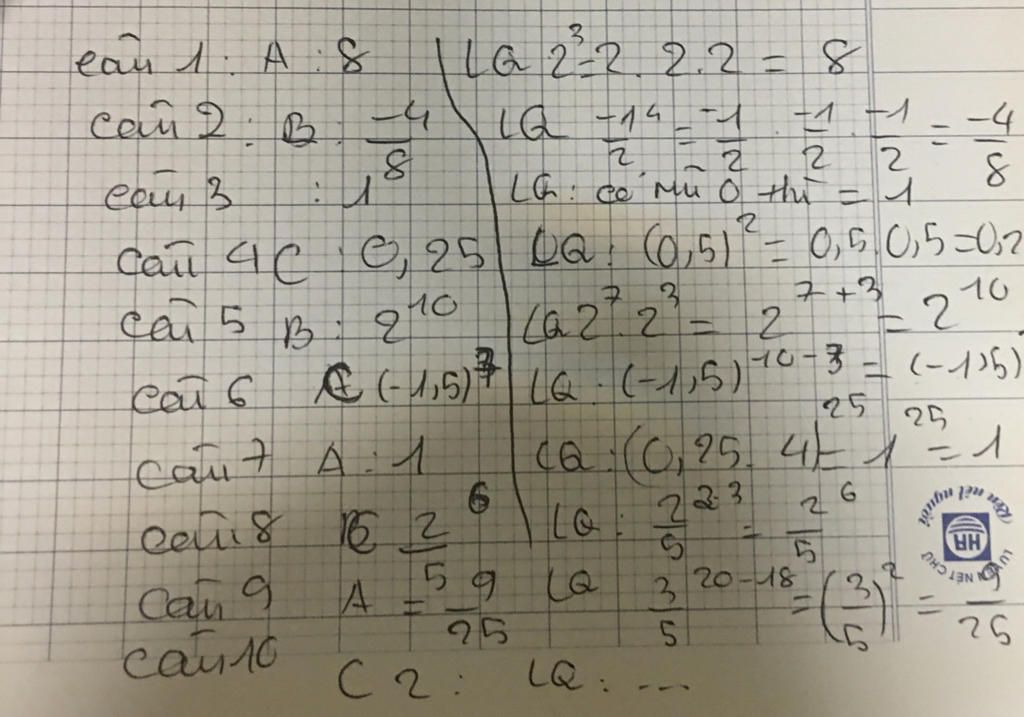 câu 1 : A : 8 LG 2³ = 2 . 2 . 2 = 8
câu 2 : B : -4/8 LG -1/2 ⁴ = -1/2 . -1/2 . -1/2 = -4/8
câu 3 : 1 LG : có mũ 0 thì = 1
câu 4 C : 0,25 LG : (0,5)² = 0,5 . 0,5 = 0,2
câu 5 B : 2¹⁰ LG 2⁷ . 2³ = 2⁷⁺³ = 2¹⁰
câu 6 C (-1,5)⁷ LG : (-1,5)¹⁰⁻³ = (-1,5)
câu 7 A : 1 LG : (0,25 . 4)²⁵ = 1²⁵ = 1
câu 8 C 2/5 ⁶ LG : 2/5 ²·³ = 2/5 ⁶
câu 9 A = 9/25 LG 3/5 ²⁰⁻¹⁸ = (3/5)² = 9/25
câu 10
C 2 : LG : ...
Rèn nết người
HA
LUYỆN NÉT CHỮ